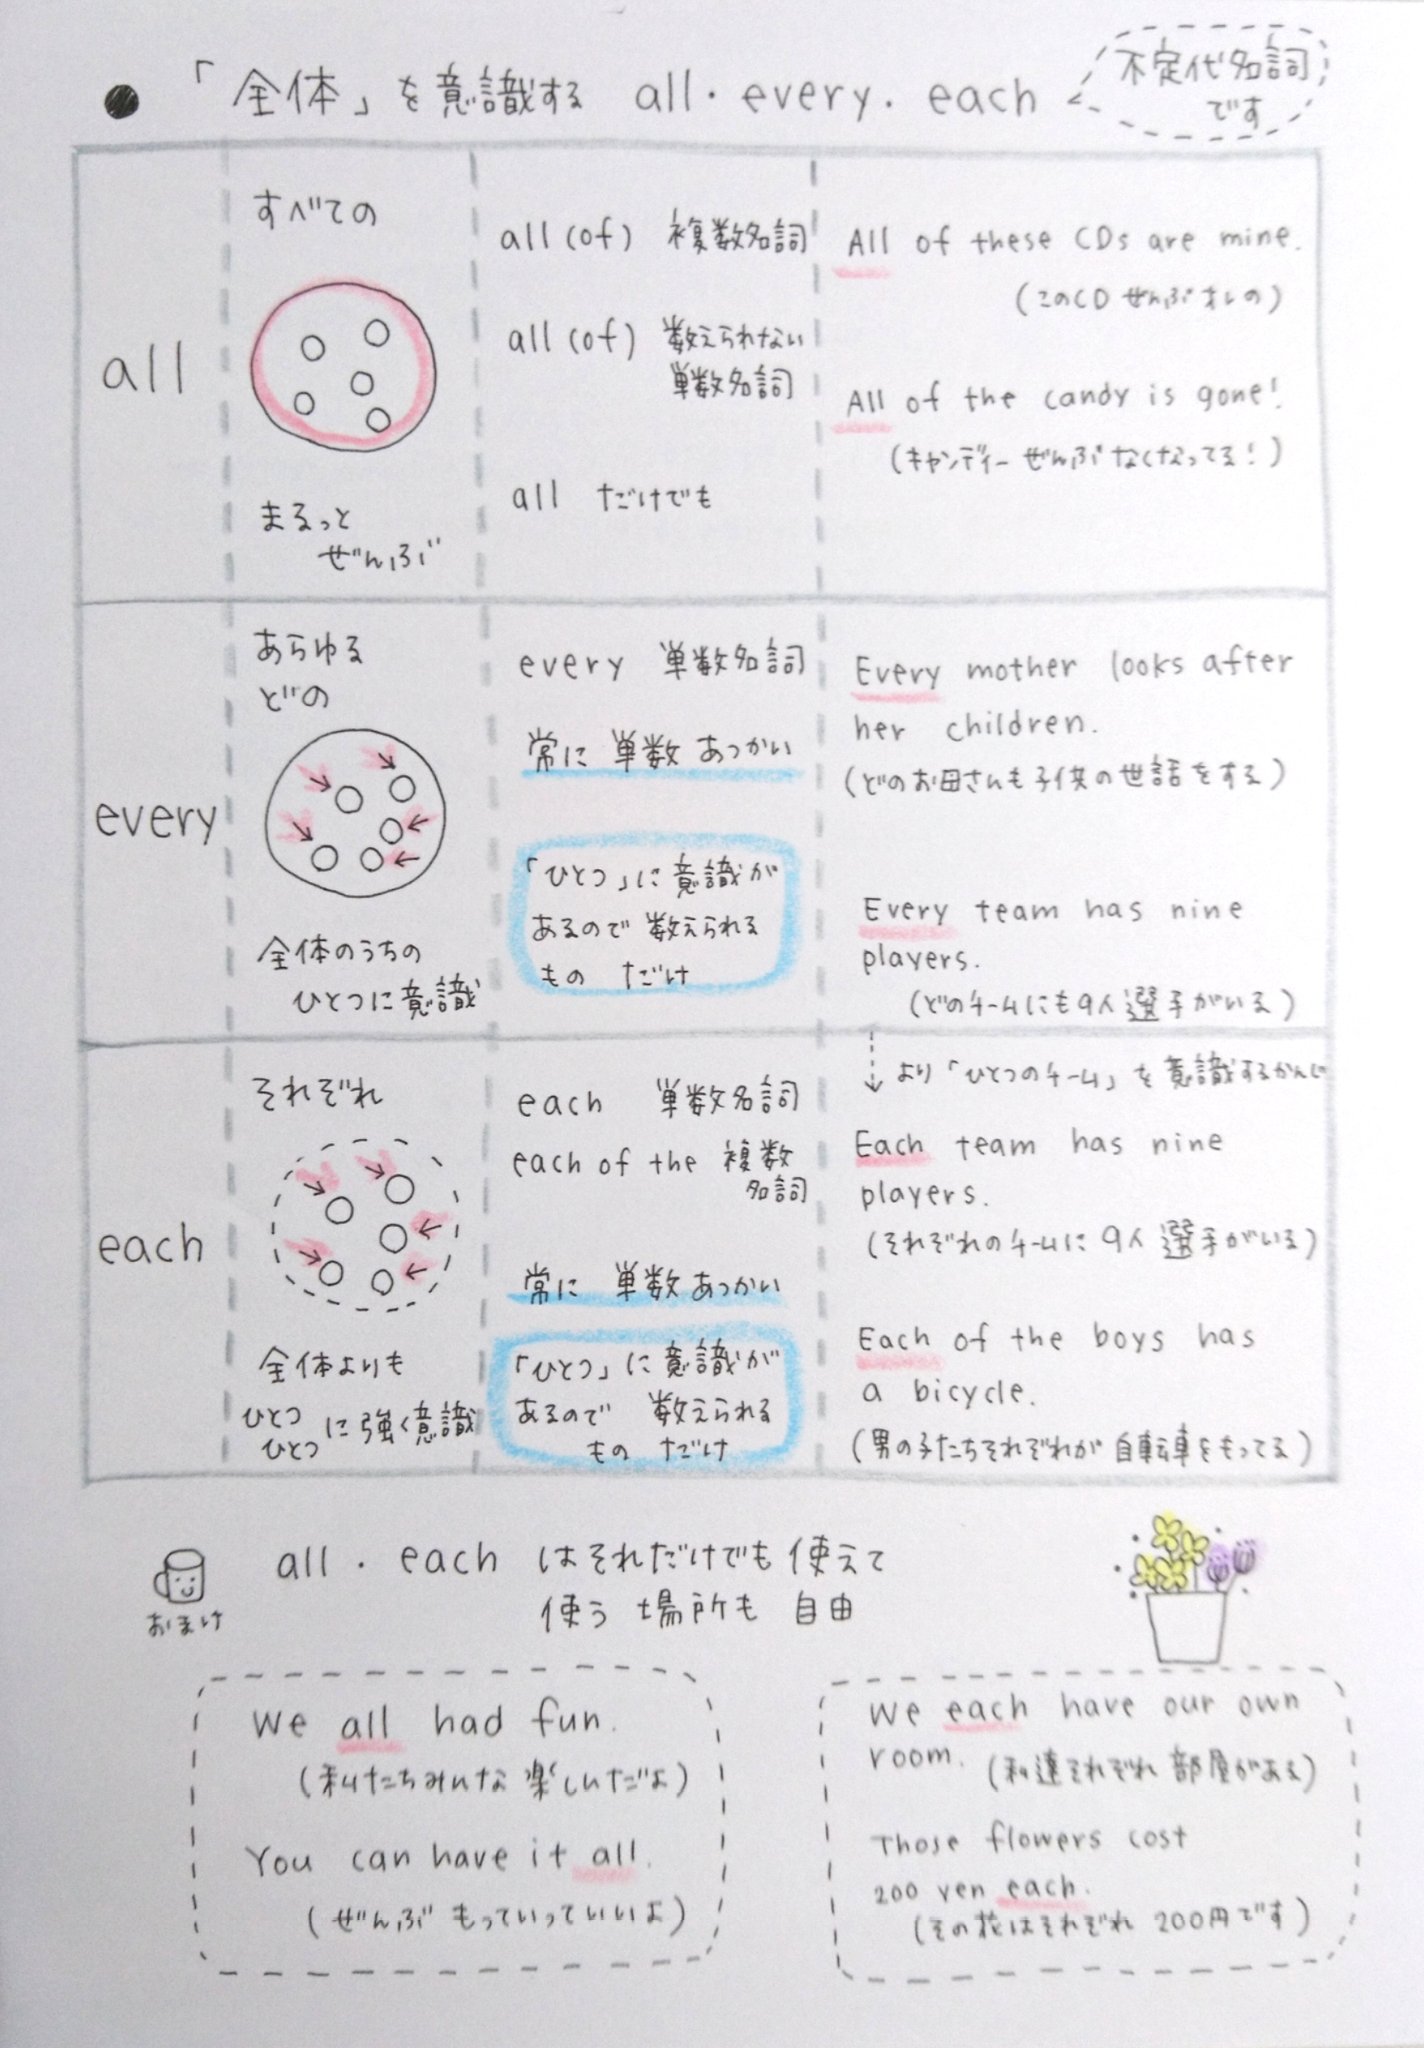 ● 「全体」を意識する all・every・each
不定代名詞
です
all
すべての
まるっと
ぜんぶ
all (of) 複数名詞
all (of) 数えられない
単数名詞
all だけでも
All of these CDs are mine.
(このCD ぜんぶオレの)
All of the candy is gone!
(キャンディー ぜんぶ なくなってる!)
every
あらゆる
どの
全体のうちの
ひとつに意識
every 単数名詞
常に 単数 あつかい
「ひとつ」に意識が
あるので 数えられる
もの だけ
Every mother looks after
her children.
(どのお母さんも子供の世話をする)
Every team has nine
players.
(どのチームにも9人選手がいる)
each
それぞれ
全体よりも
ひとつ
ひとつ に強く意識
each 単数名詞
each of the 複数
名詞
常に 単数あつかい
「ひとつ」に意識が
あるので 数えられる
もの だけ
より「ひとつのチーム」を意識するかんじ
Each team has nine
players.
(それぞれのチームに9人選手がいる)
Each of the boys has
a bicycle.
(男の子たちそれぞれが自転車をもってる)
おまけ
all・each はそれだけでも使えて
使う場所も自由
We all had fun.
(私たちみんな楽しいだよ)
You can have it all.
(ぜんぶもっていっていいよ)
We each have our own
room. (私達それぞれ部屋がある)
Those flowers cost
200 yen each.
(その花はそれぞれ 200円です)